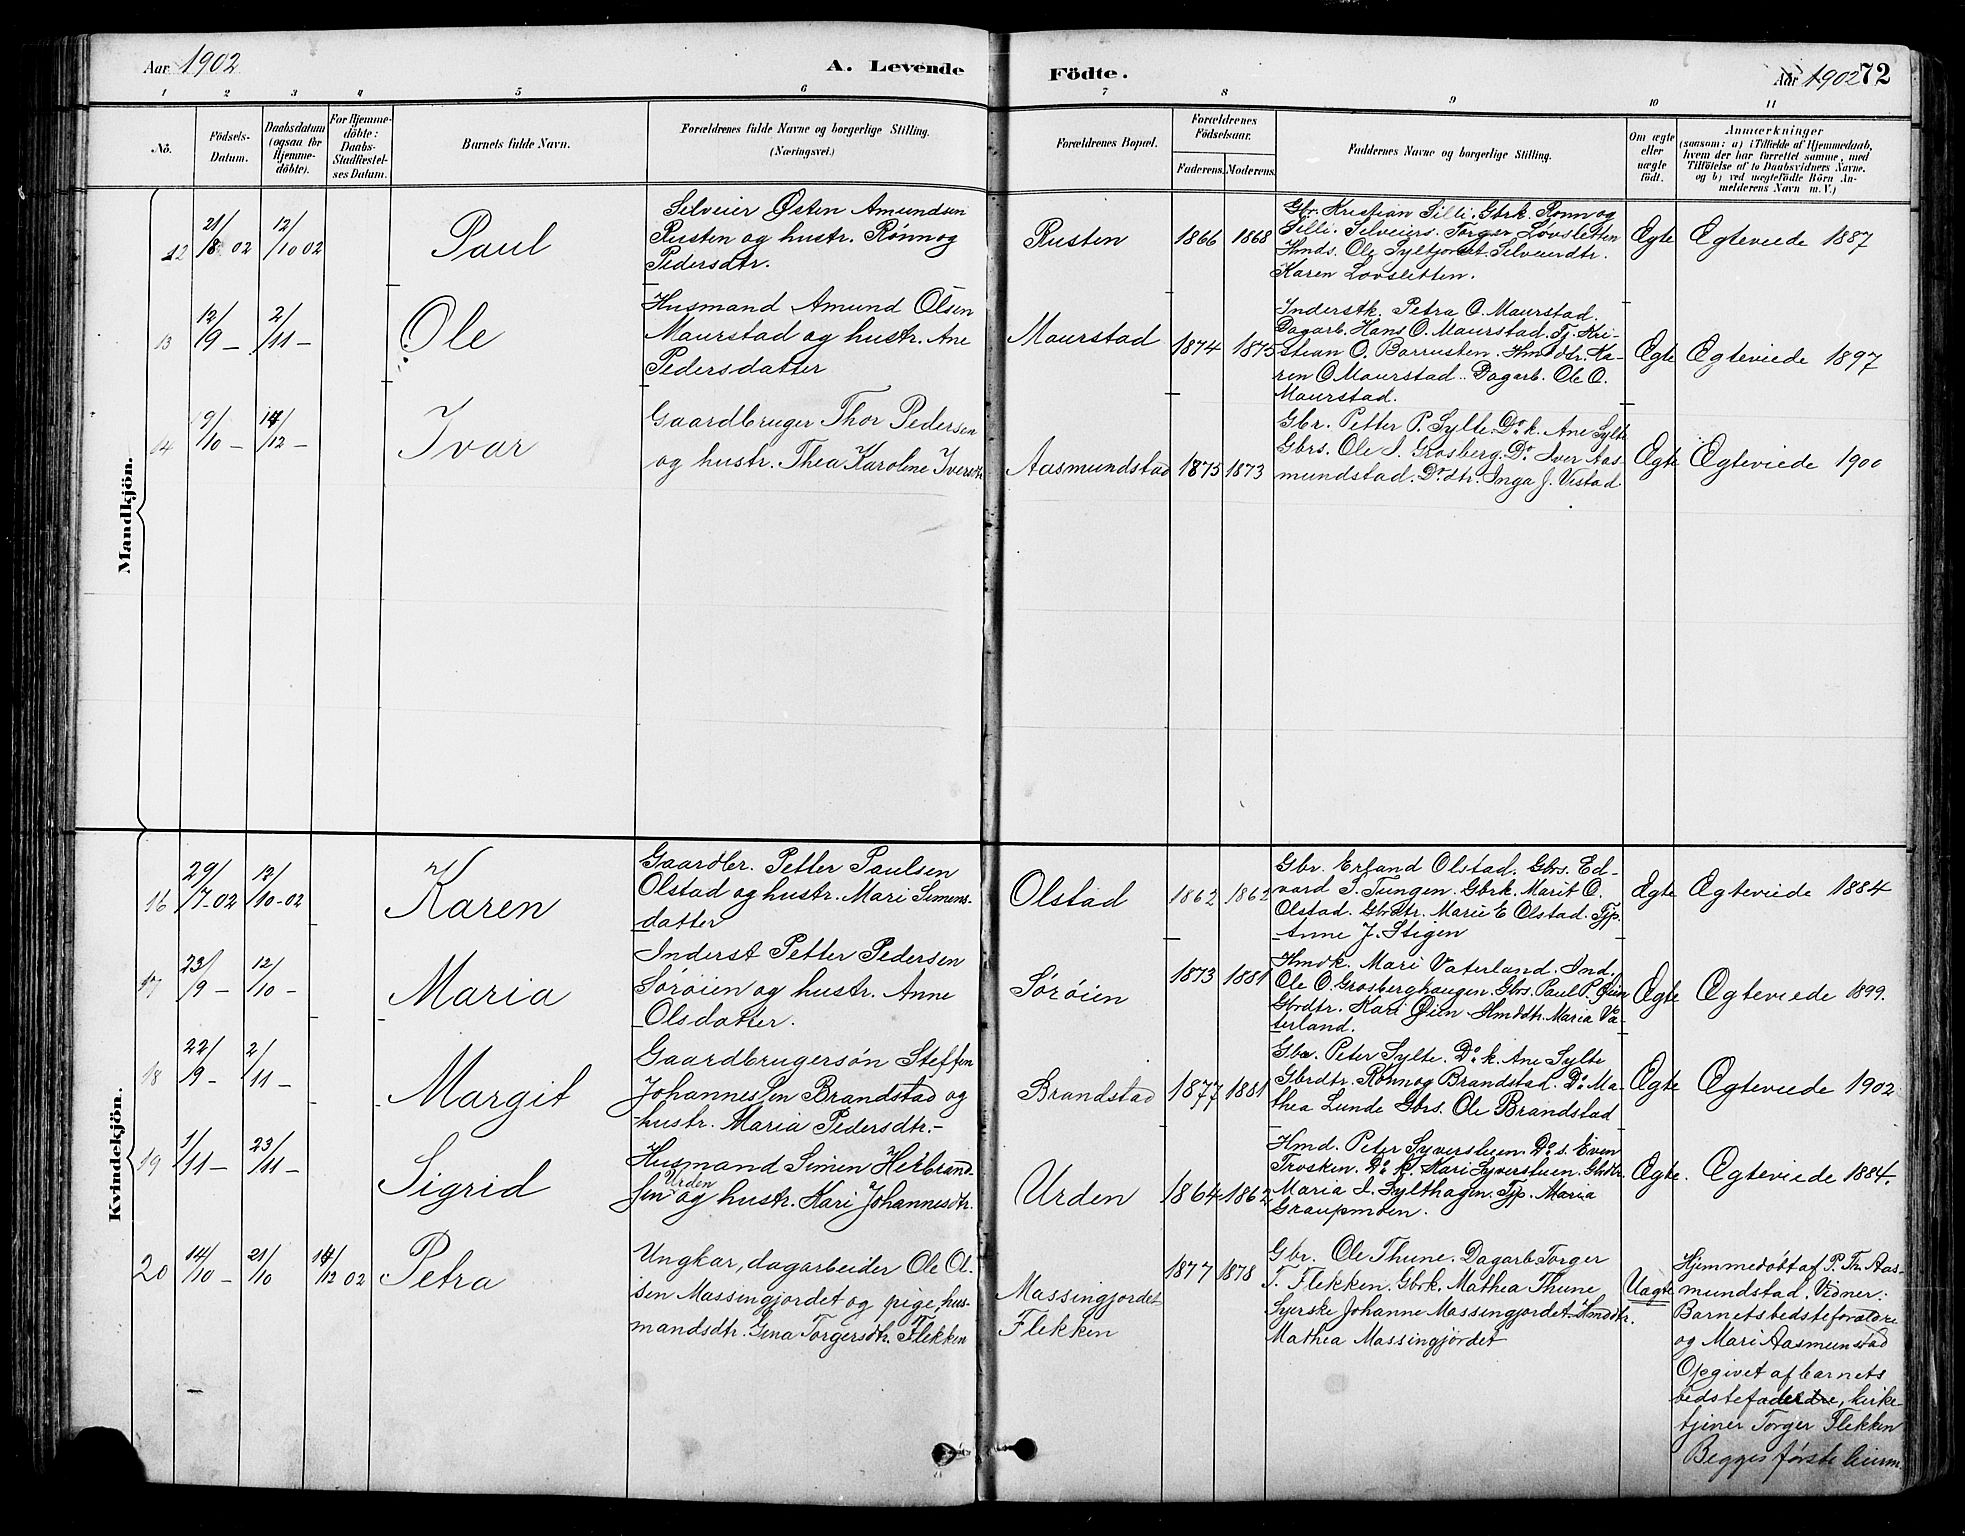 Aar 1902
A. Levende
Födte.
Aar 1902 72
1 2 3 4 5 6 7 8 9 10 11
No.
Födsels-
Datum.
Daabsdatum
(ogsaa for
Hjemme-
döbte).
For Hjemme-
döbte:
Daabs-
Stadfæstel-
ses Datum.
Barnets fulde Navn.
Forældrenes fulde Navne og borgerlige Stilling.
(Næringsvei.)
Forældrenes Bopæl.
Forældrenes
Födselsaar.
Faderens. Moderens.
Faddernes Navne og borgerlige Stilling.
Om ægte
eller
uægte
födt.
Anmærkninger
(saasom: a) i Tilfælde af Hjemmedaab,
hvem der har forrettet samme, med
Tilföielse af to Daabsvidners Navne.
og b) ved uægtefödte Börn An-
melderens Navn m. V.)
Mandkjön.
12
21/8 02
12/10 02
Paul
Selveier Østen Amundsen
Rusten og hustr. Rønnog
Pedersdtr.
Rusten
1866 1868
Gbr. Kristian Silli. Gbrk. Rønnog
Silli. Selveiers. Torger Løvsletten
Hmds. Ole Syltjordet. Selveierdtr.
Karen Løvsletten.
Ægte
Ægteviede 1887
13
12/9 -
2/11 -
Ole
Husmand Amund Olsen
Maurstad og hustr. Ane
Pedersdatter
Maurstad
1874 1875
Inderstk. Petra O. Maurstad.
Dagarb. Hans O. Maurstad. Tj. Kri-
stian O. Barrusten. Hmddtr. Ka-
ren O Maurstad.. Dagarb. Ole O.
Maurstad.
Ægte
Ægteviede 1897
14
9/10 -
14/12 -
Ivar
Gaardbruger Thor Pedersen
og hustr. Thea Karoline Iversdtr
Aasmundstad
1875 1873
Gbr. Petter P. Sylte. Do. k. Ane Sylte
Gbrs. Ole I. Grosberg. Do. Iver Aas-
mundstad. Do dtr. Inga J. Vistad
Ægte
Ægteviede 1900
Kvindekjön.
16
29/7-02
12/10-02
Karen
Gaardbr. Petter Paulsen
Olstad og hustr. Mari Simens-
datter
Olstad
1862 1862
Gbr. Erland Olstad. Gbrs. Ed-
vard I. Tungen. Gbrk. Marit O.
Olstad. Gbrdtr. Marie E Olstad. Tjp.
Anne J. Stigen
Ægte
Ægteviede 1884
17
23/9 -
12/10 -
Maria
Inderst Petter Pedersen
Sørøien og hustr. Anne
Olsdatter.
Sørøien
1873 1881
Hmdk. Mari Vaterland. Ind.
Ole O. Grosberghaugen. Gbrs. Paul P. Øien
Gbrdtr. Kari Øien Hmddtr. Maria Va-
terland.
Ægte
Ægteviede 1899.
18
22/9 -
2/11 -
Margit
Gaardbrugersøn Steffen
Johannessen Brandstad og
hustr. Maria Pedersdtr.-
Brandstad
1877 1881
Gbr. Peter Sylte. Do. k. Ane Sylte
Gbrdtr. Rønnog Brandstad. Do Ma-
thea Lunde Gbrs. Ole Brandstad
Ægte
Ægteviede 1902
19
1/11 -
23/11 -
Sigrid
Husmand Simen Herbrand-
sen Urden og hustr. Kari Johannesdtr.
Urden
1864 1862
Hmd. Peter Syversluen. Do. s. Even
Trosken. Do k. Kari Syversluen. Gbrdtr.
Maria I. Sylthagen. Tjp. Maria
Graupmoen.
Ægte.
Ægteviede 1884.
20
14/10 -
21/10
14/12 02
Petra
Ungkar, dagarbeider Ole Ol-
sen Massingjordet og pige, hus-
mandsdtr. Gina Torgersdtr. Flekken
Massingjordet
Flekken
1877 1878
Gbr. Ole Thune. Dagarb. Torger
T. Flekken. Gbrk. Mathea Thune
Syerske Johanne Massingjordet. Hmddtr.
Mathea Massingjordet
Uægte
Hjemmedøbt af P. Th. Aas-
mundstad, Vidner:
Barnets bedsteforældre
og Mari Aasmunstad
Opgivet af barnets
bedstefader, kirke-
tjener Torger Flekken
Begges første leierm.